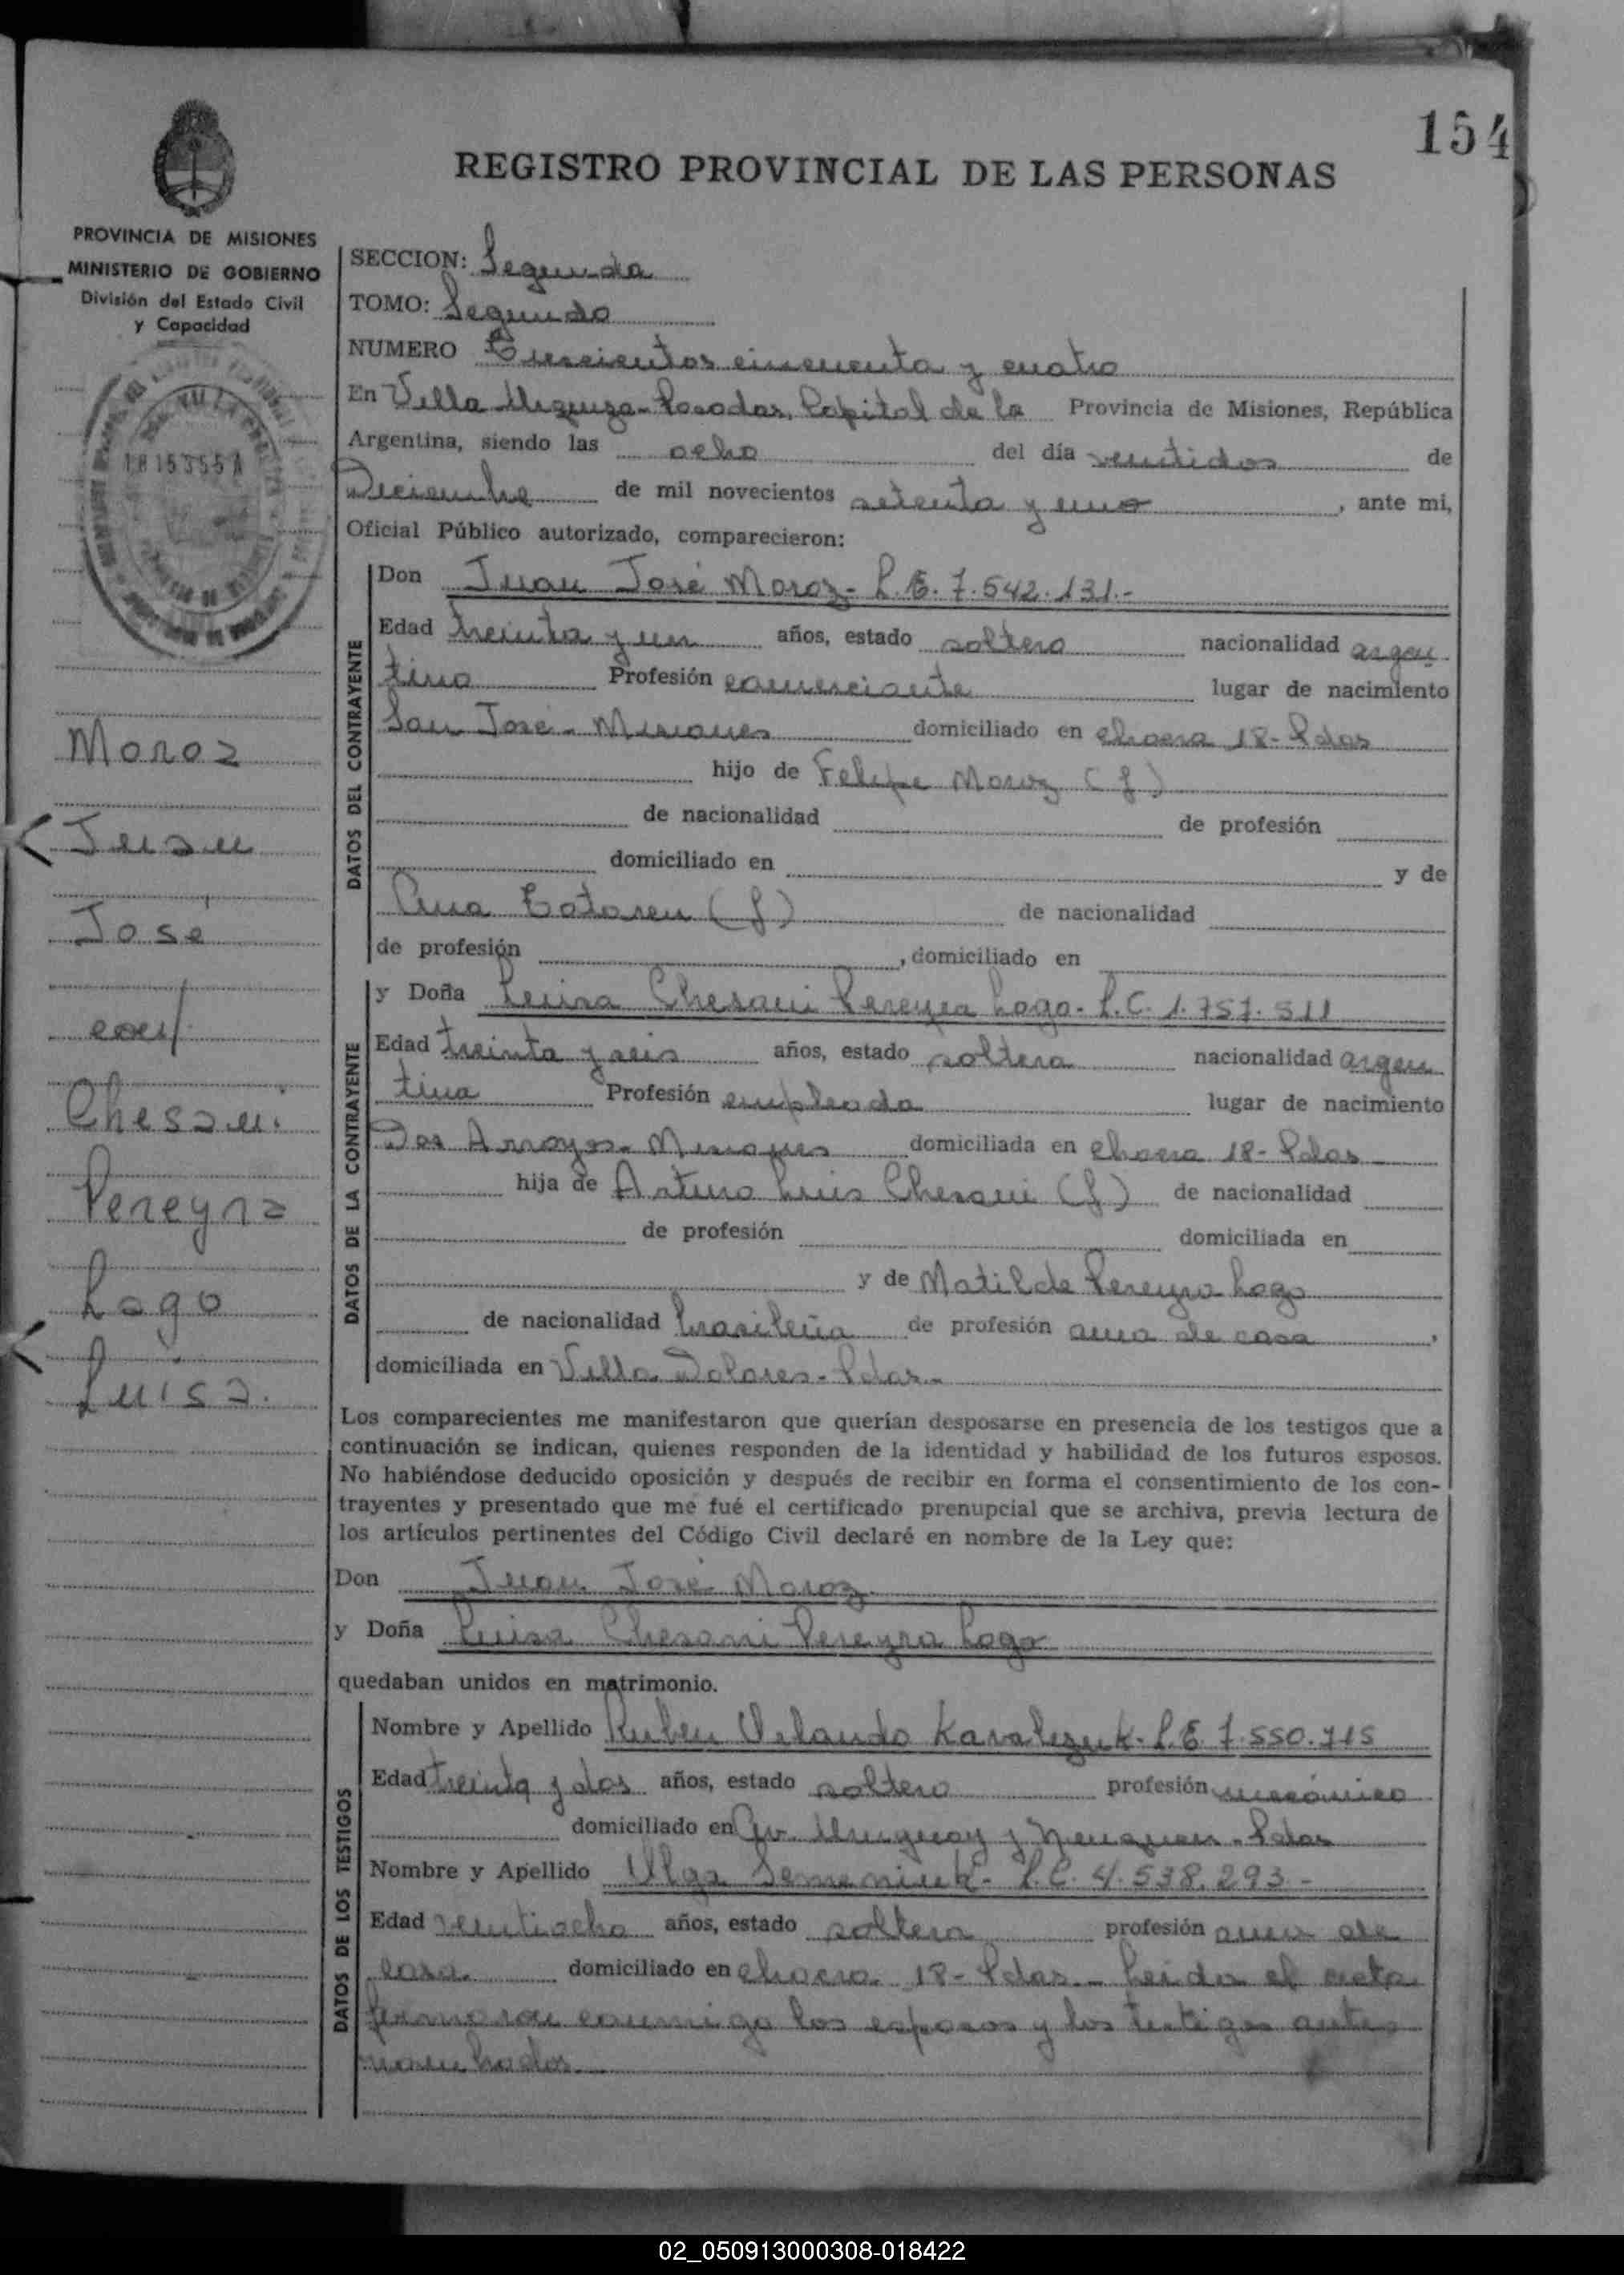 154
REGISTRO PROVINCIAL DE LAS PERSONAS
PROVINCIA DE MISIONES
MINISTERIO DE GOBIERNO
División del Estado Civil
y Capacidad
Moroz
Juan
José
con/
Chesani
Pereyra
Lago
Luisa.
SECCION: Segunda
TOMO: Segundo
NUMERO cincuenta y cuatro
En Villa Urquiza-Posadas, Capital de la Provincia de Misiones, República
Argentina, siendo las ocho del día ventidos de
Diciembre de mil novecientos setenta y uno, ante mi,
Oficial Público autorizado, comparecieron:
DATOS DEL CONTRAYENTE
Don Juan José Moroz- L.E. 7.542.131.-
Edad treinta y un años, estado soltero nacionalidad argen
tino Profesión comerciante lugar de nacimiento
San José- Misiones domiciliado en chacra 18- Pdas
hijo de Felipe Moroz (f)
de nacionalidad de profesión
domiciliado en y de
Ana (f) de nacionalidad
de profesión , domiciliado en
DATOS DE LA CONTRAYENTE
y Doña Luisa Chesani Pereyra Lago- L.C. 1.757.511
Edad treinta y seis años, estado soltera nacionalidad argen
tina Profesión empleada lugar de nacimiento
Dos Arroyos- Misiones domiciliada en chacra 18- Pdas
hija de Arturo Luis Chesani (f) de nacionalidad
de profesión domiciliada en
y de Matilde Pereyra Lago
de nacionalidad brasileña de profesión ama de casa,
domiciliada en Villa Dolores- Pdas.-
Los comparecientes me manifestaron que querían desposarse en presencia de los testigos que a
continuación se indican, quienes responden de la identidad y habilidad de los futuros esposos.
No habiéndose deducido oposición y después de recibir en forma el consentimiento de los con-
trayentes y presentado que me fué el certificado prenupcial que se archiva, previa lectura de
los artículos pertinentes del Código Civil declaré en nombre de la Ley que:
Don Juan José Moroz
y Doña Luisa Chesani Pereyra Lago
quedaban unidos en matrimonio.
DATOS DE LOS TESTIGOS
Nombre y Apellido Ruben Orlando Kavalezuk- L.E. 7.550.715
Edad treinta y dos años, estado soltero profesión mecánico
domiciliado en Av. Uruguay y Neuquen- Pdas
Nombre y Apellido Olga Semeniuk- L.C. 4.538.293-
Edad ventiocho años, estado soltera profesión ama de
casa domiciliado en chacra 18- Pdas- Leida el acta
firmaron conmigo los esposos y los testigos antes
nombrados
02_050913000308-018422